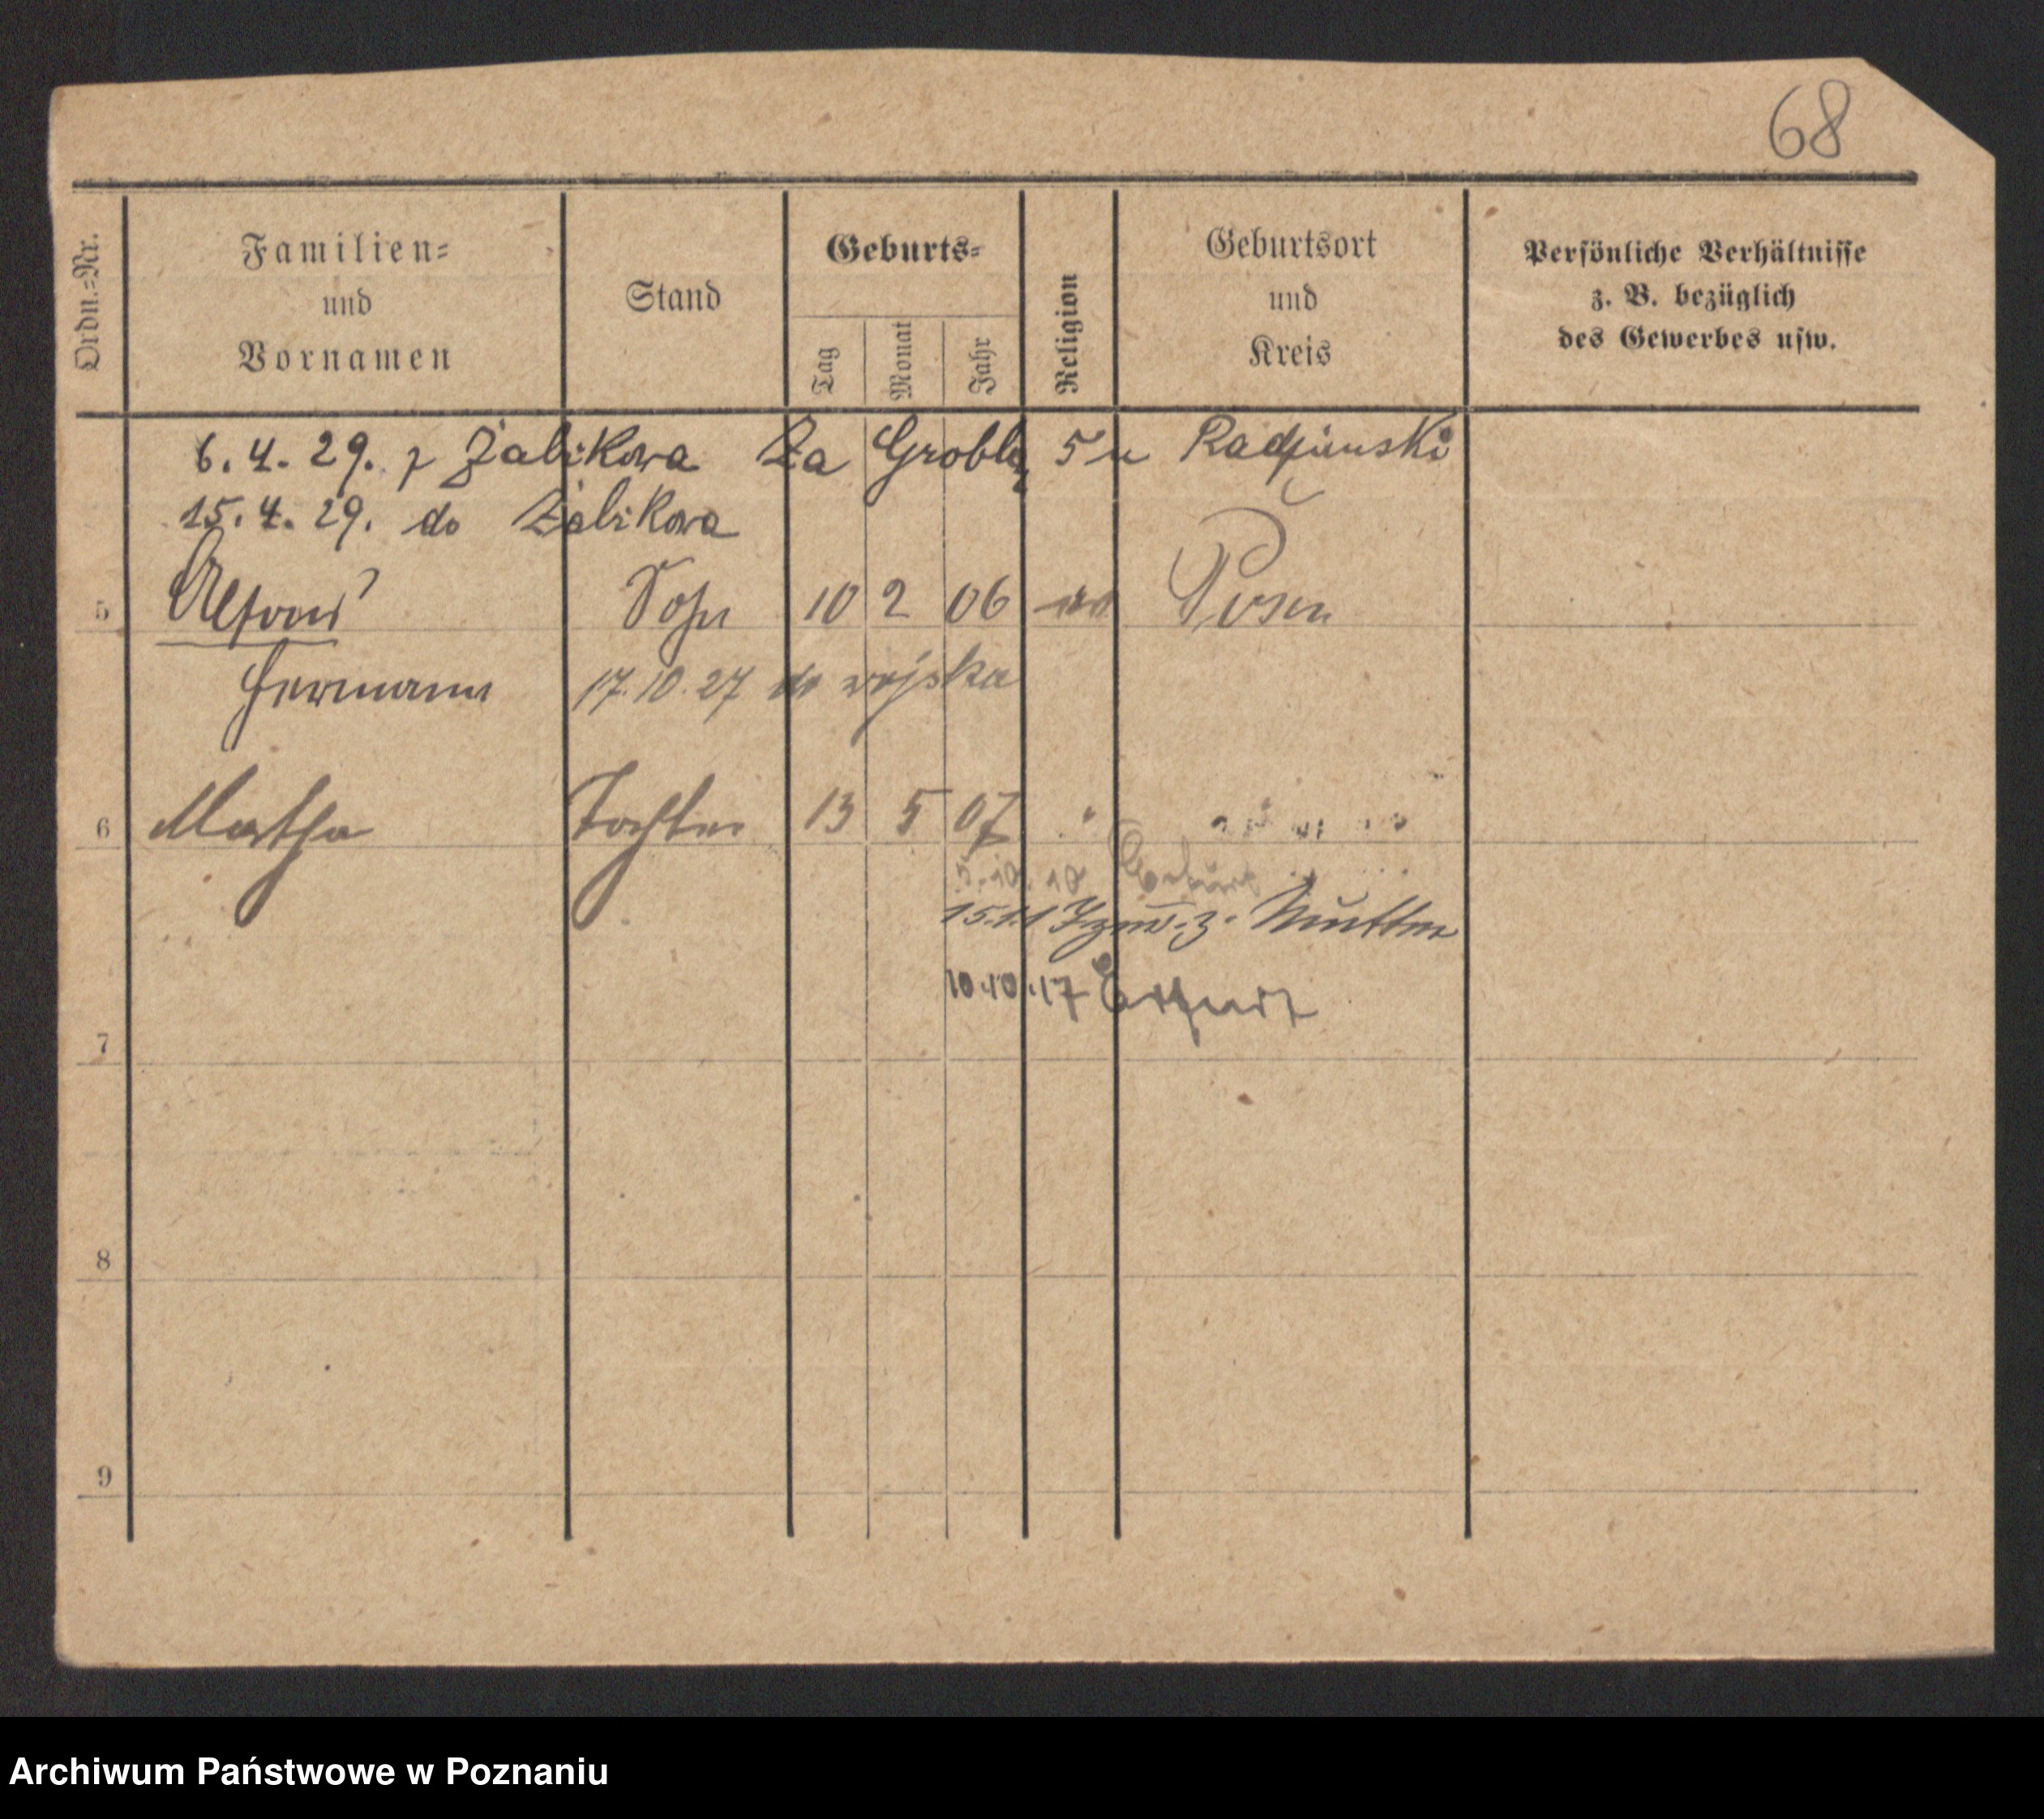 68
Ordn.-Nr.
Familien-
und
Vornamen
Stand
Geburts-
Tag
Monat
Jahr
Religion
Geburtsort
und
Kreis
Persönliche Verhältnisse
z. B. bezüglich
des Gewerbes usw.
6. 4. 29. z Żabikowa Za Groblą 5 u Radzimski
15. 4. 29. do Żabikowa
5 Alfons Sohn 10 2 06 Posen
Hermann 17. 10. 27 do wojska
6 Martha Tochter 13 5 07 "
Erfurt
15.11 z. Mutter
10.10.17 Erfurt
7
8
9
Archiwum Państwowe w Poznaniu